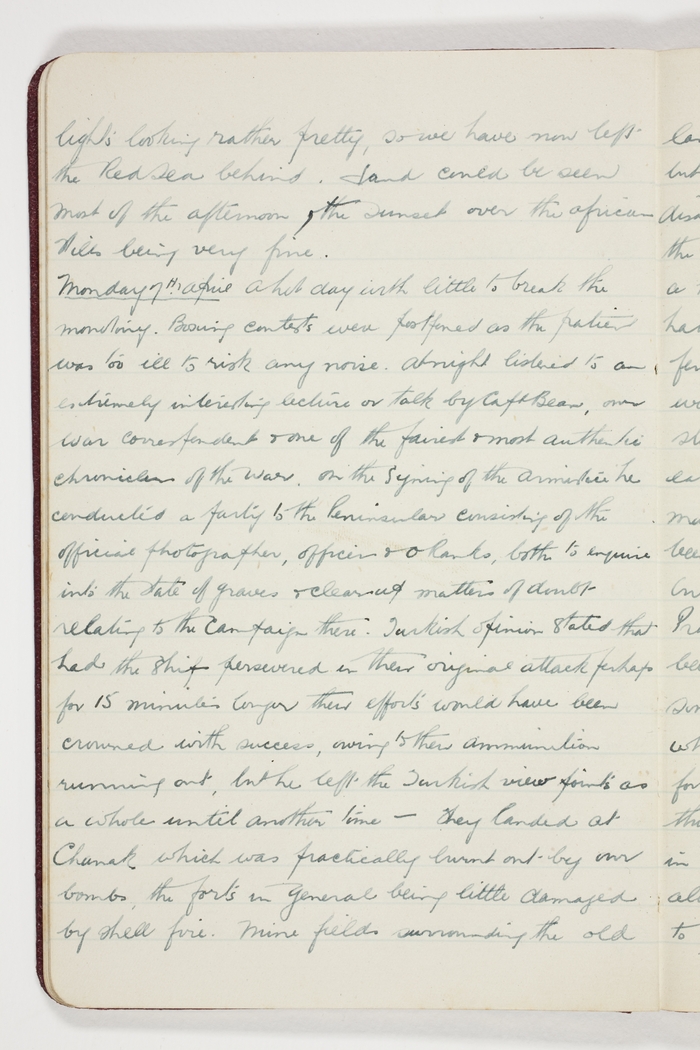 lights looking rather pretty, so we have now left
the Red Sea behind. Land could be seen
most of the afternoon, the Sunset over the african
Hills being very fine.
Monday 7th april a hot day with little to break the
monotony. Boxing contests were postponed as the patient
was too ill to risk any noise. at night listened to an
extremely interesting lecture or talk by Capt Bean, our
war correspondent & one of the fairest & most authentic
chroniclers of the War. on the Signing of the armistice he
conducted a party to the Peninsular consisting of the
official photographer, officers & o Ranks, both to enquire
into the state of graves & clear up matters of doubt
relating to the Campaign there. Turkish opinion Stated that
had the Ships persevered in their original attack perhaps
for 15 minutes longer their efforts would have been
crowned with success, owing to their ammunition
running out, but he left the Turkish view points as
a whole until another time — They landed at
Chanak which was practically burnt out by our
bombs, the forts in General being little damaged
by shell fire. Mine fields surrounding the old